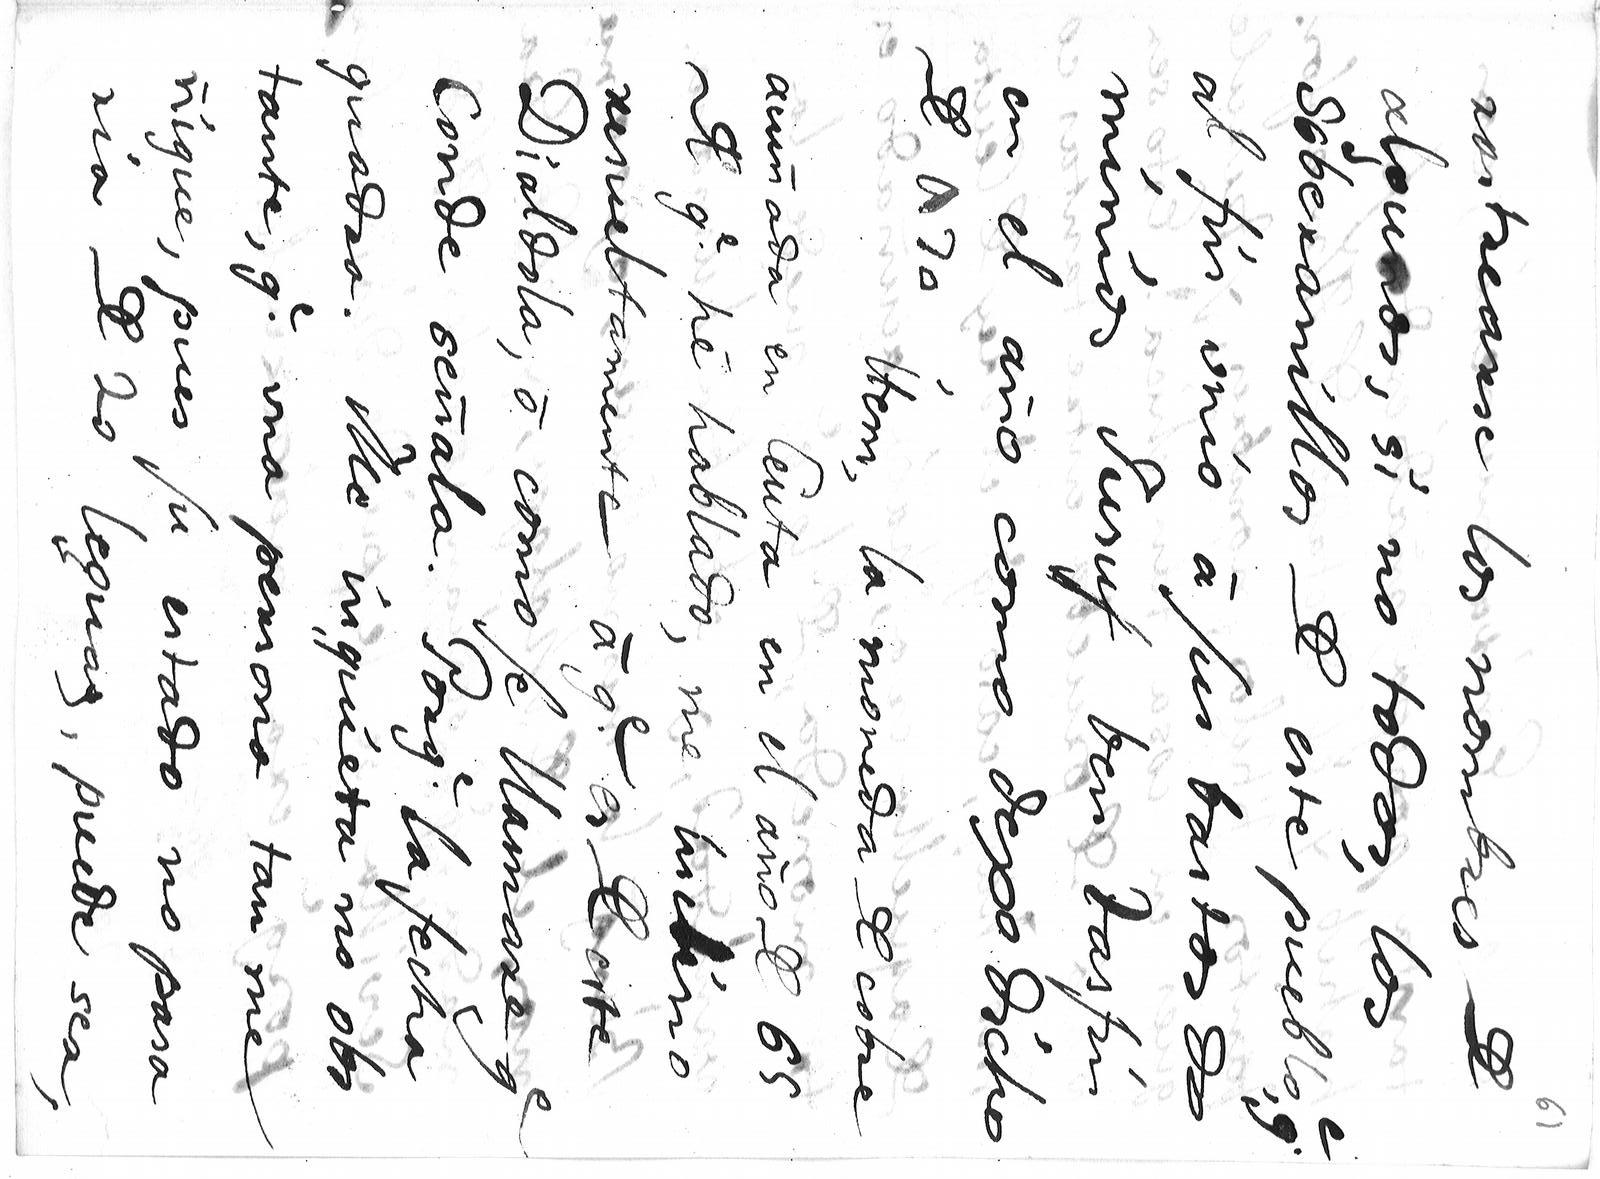 61
rastrearse los nombres de
algunos, si no todos, los
Gobernarillos de este pueblo, q.e
al fin vnió á sus bastos do
minios Jusuf ben Tasfin
en el año como dexo dicho
de 170
Item, la moneda de cobre
acuñada en Ceuta en el año de 65
de q.e hé hablado, me inclino
resueltamente á q.e es de este
Dialdola, ó como se llamare q.e
Conde señala. Porq.e la fecha
quadra. No inquieta no obs
tante, q.e una persona tan me
ñique, pues su estado no pasa
ria de 20 leguas, pueda sea,